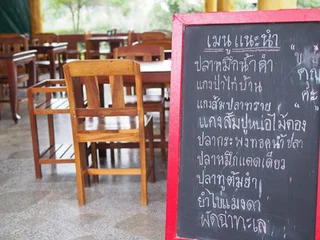 เมนูแนะนำ
ปลาหมึกน้ำดำ
แกงป่าไก่บ้าน
แกงส้มปลาทราย
แคงส้มปูหน่อไม้ดอง
ปลากระพงทอดน้ำปลา
ปลาหมึกแดดเดียว
ปลาทูต้มยำ
ยำไข่แมงดา
ผัดฉ่าทะเล